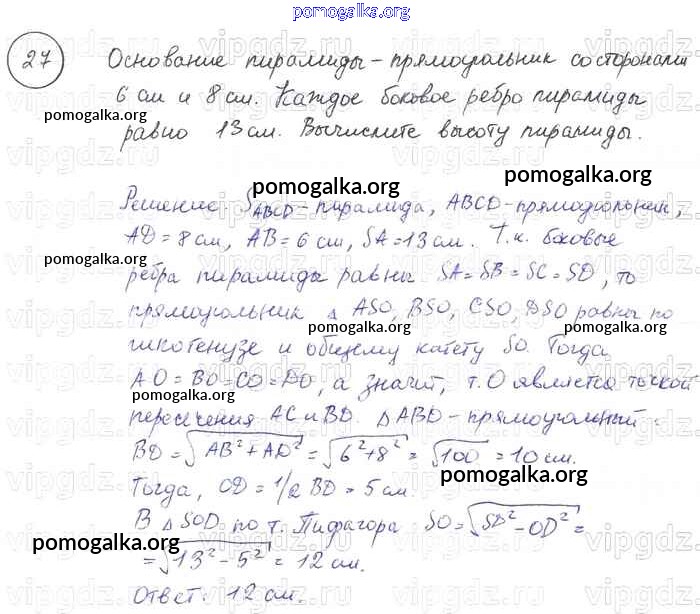 pomogalka.org
27
Основание пирамиды - прямоугольник со сторонами
6 см и 8 см. Каждое боковое ребро пирамиды
pomogalka.org
равно 13 см. Вычислите высоту пирамиды.
pomogalka.org pomogalka.org
Решение. SABCD - пирамида, ABCD - прямоугольник,
AD = 8 см, AB = 6 см, SA = 13 см. Т.к. боковые
pomogalka.org
ребра пирамиды равны SA = SB = SC = SD, то
прямоугольник Δ ASO, BSO, CSO, DSO равны по
pomogalka.org pomogalka.org
гипотенузе и общему катету SO. Тогда
AO = BO = CO = DO, а значит, т. O является точкой
pomogalka.org
пересечения AC и BD. Δ ABD - прямоугольный.
BD = √AB² + AD² = √6² + 8² = √100 = 10 см.
pomogalka.org
Тогда, OD = 1/2 BD = 5 см.
В Δ SOD по т. Пифагора SO = √SD² - OD² =
pomogalka.org
= √13² - 5² = 12 см.
pomogalka.org
Ответ: 12 см.